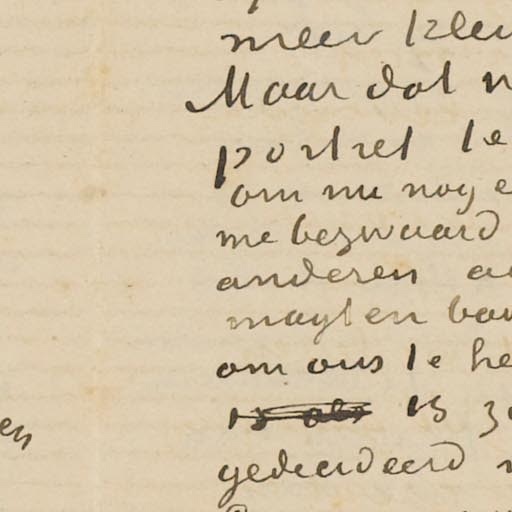 meer kleu
Maar dat
portret te
om nu nog e
me bezwaard
anderen
magten bou
om ons te he
is als is zo
gedecideerd
en